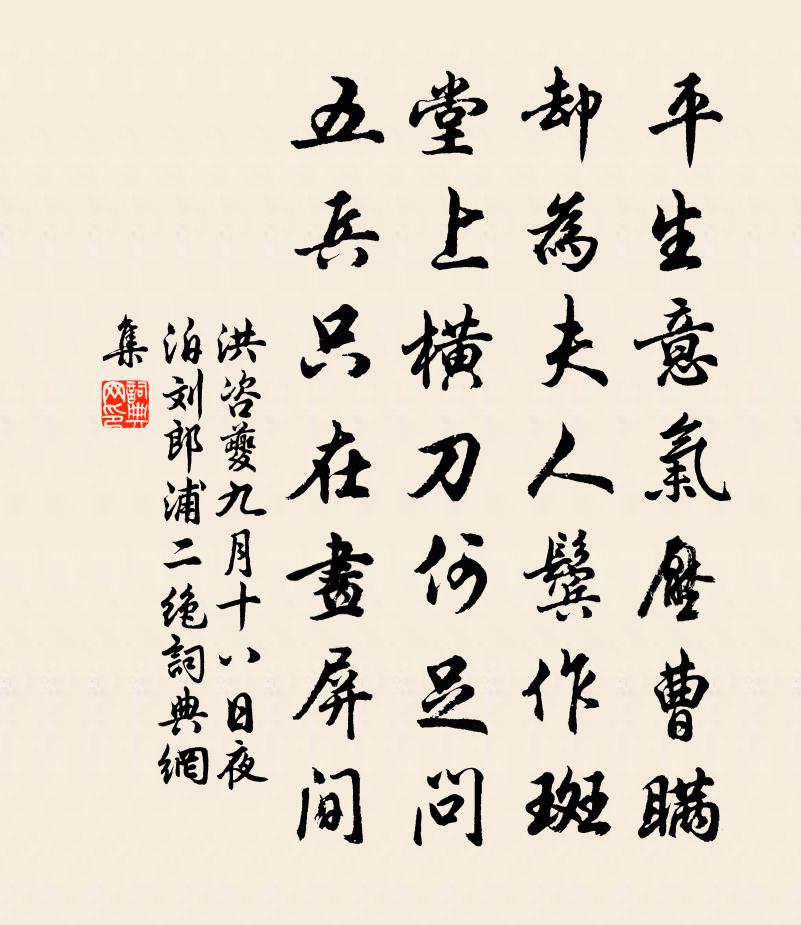 平生意氣壓曹瞞
却為夫人鬓作斑
堂上橫刀何足問
五兵只在畫屏间
洪咨夔九月十八日夜
泊刘郎浦二绝詞典網
集
詞典
网印